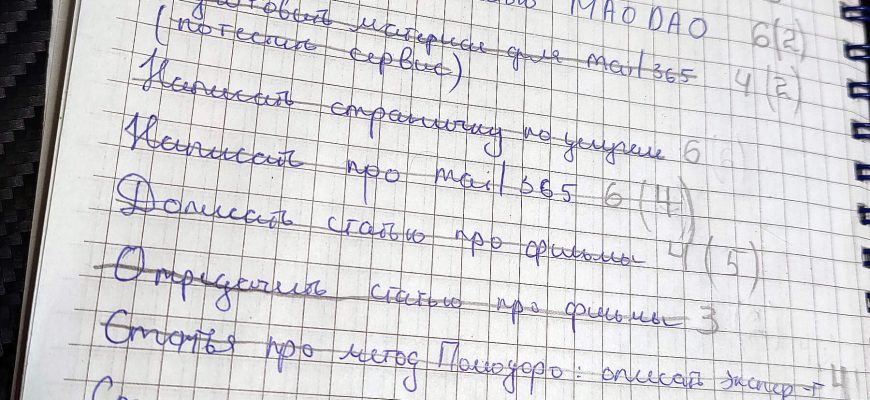 MAODAO 6(2)
материал для mail365 4(2)
(потестить сервис)
Написать страничку по услугам 6
Написать про mail365 6(4)
Дописать статью про фильмы 4(5)
Отредачить статью про фильмы 3
Статья про метод Помодоро: описать экспер-т 4